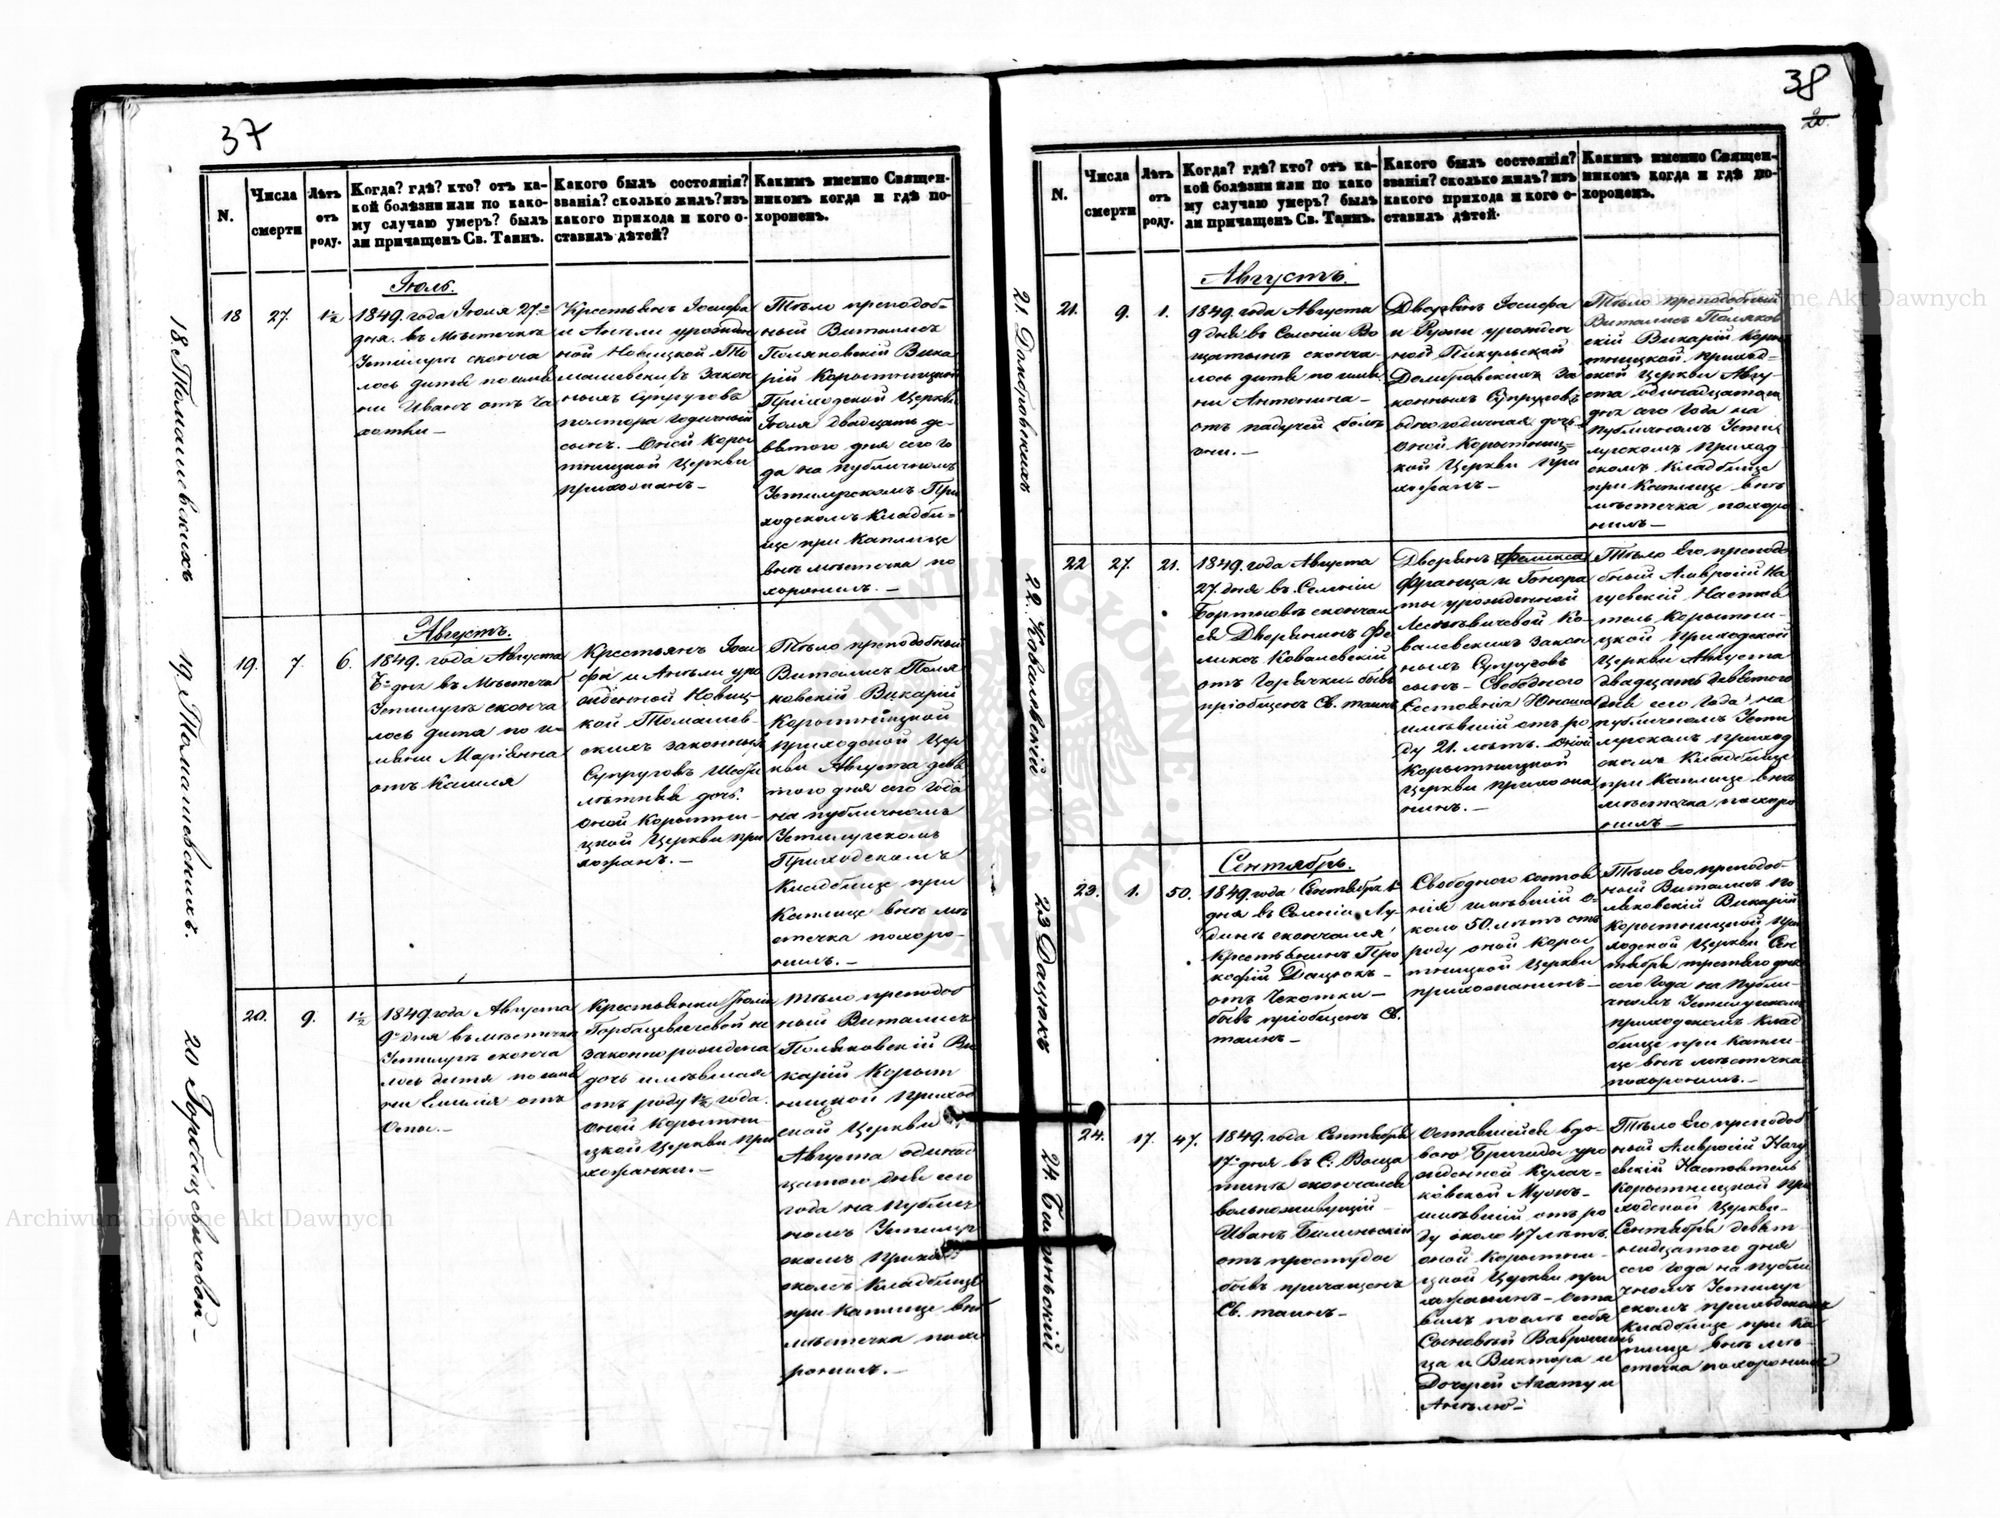 37
N.
Числа смерти
Лѣтъ отъ роду.
Когда? гдѣ? кто? отъ ка-
кой болѣзни или по како-
му случаю умеръ? былъ
ли причащенъ Св. Таинъ.
Какого былъ состоянія?
званія? сколько жилъ? изъ
какого прихода и кого о-
ставилъ дѣтей?
Какимъ именно Священ-
никомъ когда и гдѣ по-
хороненъ.
18 Томашевскихъ
18
27.
1½
Іюль.
1849. года Іюля 27.
дня. въ Мѣстечкѣ
Устилугѣ сконча
лось дитя по име
ни Иванъ отъ ча
хотки —
Крестьянъ Іосифа
и Анели урожден
ной Новицкой То
машевскихъ закон
ныхъ супруговъ
полтора годичный
сынъ. — Оной Коры
тницкой Церкви
прихожанъ. —
Тѣло преподоб-
ный Виталисъ
Поляковскій Вика
рій Корытницкой
Приходской Церкви
Іюля двадцать де-
вятого дня сего го
да на публичномъ
Устилугскомъ При
ходскомъ Кладби-
ще при Каплице
внѣ мѣстечка по
хоронилъ. —
19. Томашевскихъ.
19.
7.
6.
Августъ.
1849. года Августа
дня въ Мѣстеч
Устилугѣ сконча
лось дитя по и-
мени Маріянна
отъ Кашля
Крестьянъ Іоси
фа и Анели уро
жденной Новиц-
кой Томашев-
скихъ законныхъ
Супруговъ шести
лѣтняя дочь.
Оной Корытни-
цкой Церкви при
хожанъ. —
Тѣло преподобный
Виталисъ Поля
ковскій Викарій
Корытницкой
приходской Цер
кви Августа девя
того дня сего года
на публичномъ
Устилугскомъ
Приходскомъ
Кладбище при
Каплице внѣ мѣ
стечка похоро-
нилъ. —
20 Горбацевичовой —
20.
9.
1½
1849 года Августа
9 дня въ мѣстечкѣ
Устилугѣ сконча
лось дитя по име
ни Емилія отъ
Оспы. —
Крестьянки Юлiи
Горбацевичевой не
законно рожденна
дочь имѣвшая
отъ роду 1½ года.
Оной Корытни
цкой Церкви при
хожанки. —
Тѣло преподоб
ный Виталисъ
Поляковскій Ви
карій Корыт
ницкой приход
ской Церкви
Августа одинад
цатого дня сего
года на публич
номъ Устилуг
скомъ Приход
скомъ Кладбище
при Каплице внѣ
мѣстечка похо
ронилъ. —
38
20.
N.
Числа смерти
Лѣтъ отъ роду.
Когда? гдѣ? кто? отъ ка-
кой болѣзни или по како
му случаю умеръ? былъ
ли причащенъ Св. Таинъ.
Какого былъ состоянія?
званія? сколько жилъ? изъ
какого прихода и кого о-
ставилъ дѣтей.
Какимъ именно Священ-
никомъ когда и гдѣ по-
хороненъ.
21. Домбровскихъ
21.
9.
1.
Августъ.
1849. года Августа
9 дня въ Селеніи Во
щатынѣ сконча-
лось дитя по име
ни Антонина —
отъ падучей болѣ
зни. —
Дворянъ Іосифа
и Рузи урожден
ной Пикульской
Домбровскихъ за
конныхъ Супруговъ
одногодичная дочь
Оной Корытниц-
кой Церкви при
хожанъ —
Тѣло преподобный
Виталисъ Поляков
скій Викарій Коры
тницкой приход-
ской Церкви Авгу-
ста одинадцатого
дня сего года на
публичномъ Усти
лугскомъ приход
скомъ кладбище
при Каплице внѣ
мѣстечка похоро
нилъ —
22. Ковалевскій
22
27.
21.
1849. года Августа
27. дня въ Селеніи
Бортновѣ скончал
ся Дворянинъ Фе
ликсъ Ковалевскій
отъ Горячки бывъ
пріобщенъ Св. таинъ
Дворянъ Феликса
Франца и Гонора
ты урожденной
Ковалевскихъ закон
ныхъ Супруговъ
сынъ — Свободного
Состоянія Юноша
имѣвшій отъ ро
ду 21. лѣтъ. Оной
Корытницкой
Церкви прихожа
нинъ. —
Тѣло Его преподо
бный Амвросій На
гуевскій Настоя
тель Корытни-
цкой Приходской
Церкви Августа
двадцать девятого
дня сего года на
публичномъ Усти
лугскомъ приход
скомъ Кладбище
при Каплице внѣ
мѣстечка похоро
нилъ —
23 Дацюкъ
23.
1.
50.
Сентябрь.
1849. года Сентября 1
дня въ Селеніи Лу
динѣ скончался
Крестьянинъ Про
кофій Дацюкъ —
отъ Чехотки —
бывъ пріобщенъ Св.
таинъ —
Свободного состоя
нія имѣвшій о-
коло 50. лѣтъ отъ
роду оной Коры
тницкой Церкви
прихожанинъ —
Тѣло Его преподоб-
ный Виталисъ По
ляковскій Викарій
Корытницкой При
ходской Церкви Сен
тября третяго дня
сего года на публи-
чномъ Устилугскомъ
приходскомъ Клад
бище при Капли-
це внѣ мѣстечка
похоронилъ. —
24. Билиньскій
24.
17.
47.
1849. года Сентября
17. дня въ С. Воща
тинѣ скончался
вольноживущій —
Иванъ Билиньскій
отъ простуды
бывъ причащенъ
Св. таинъ —
Оставшійся вдо-
вою Бригида уро
жденной Кулач-
ковской Мужъ —
имѣвшій отъ ро
ду около 47 лѣтъ.
оной Корытни-
цкой Церкви при
хожанинъ — Оста
вилъ послѣ себя
Сыновей Вавринь
ца и Виктора и
Дочерей Агату и
Анѣлю —
Тѣло Его преподоб
ный Амвросій Нагу
евскій Настоятель
Корытницкой При
ходской Церкви —
Сентября девят-
надцатого дня
сего года на публи
чномъ Устилуг
скомъ приходскомъ
Кладбище при Ка
плице внѣ мѣ-
стечка похоронилъ
Archiwum Główne Akt Dawnych
Archiwum Główne Akt Dawnych
ARCHIWUM GŁÓWNE AKT DAWNYCH